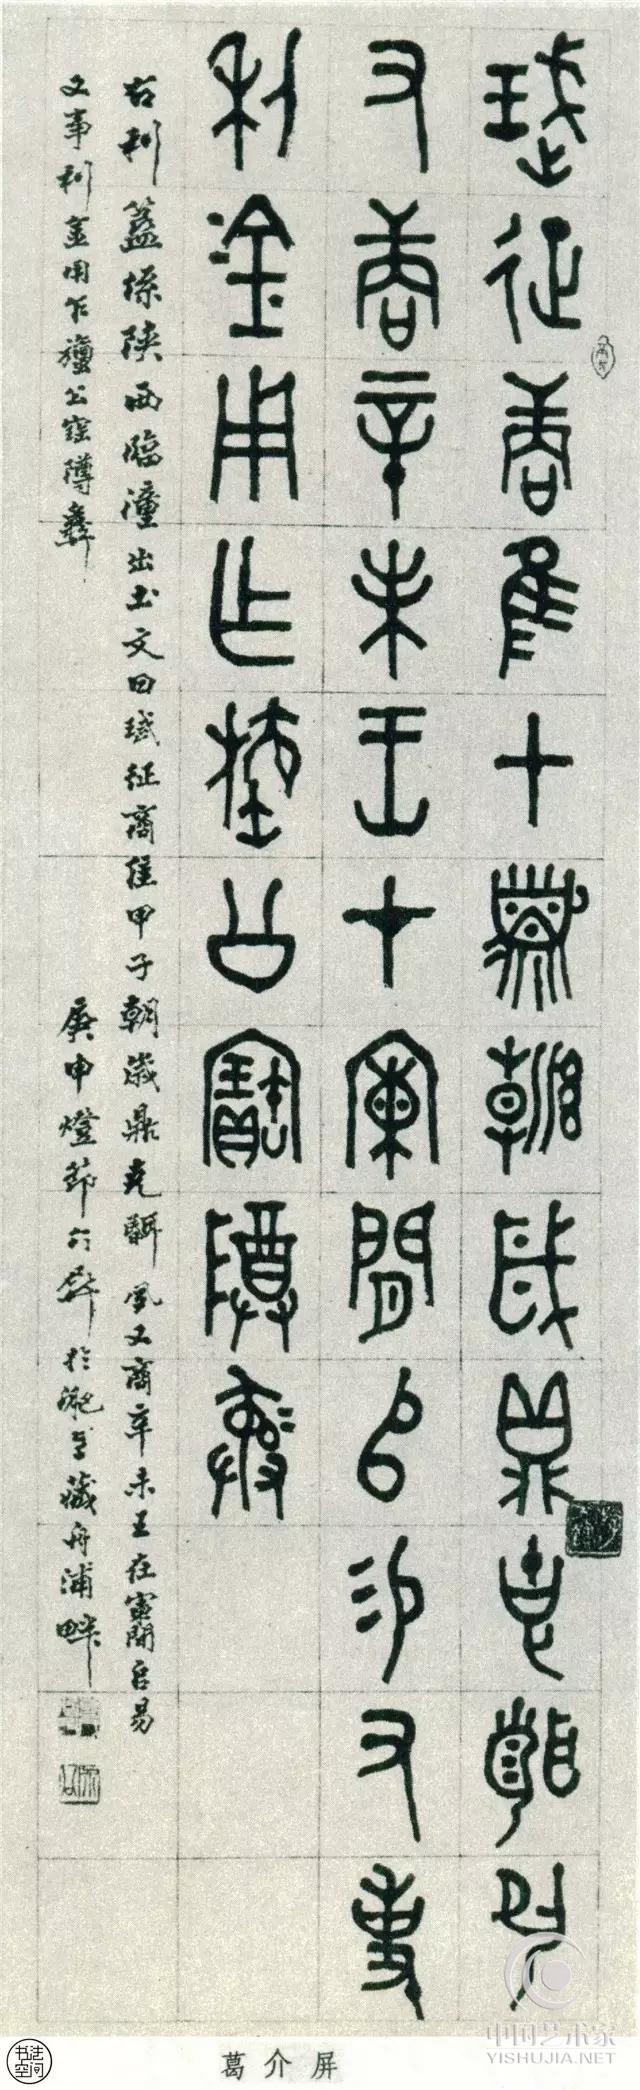 珷征商隹甲子朝歲鼎克聞夙
又商辛未王才闌𠂤易又事
利金用乍旜公寶𨻵彝
右利簋係陝西臨潼出土文曰珷征商隹甲子朝歲鼎克聞夙又商辛未王在闌𠂤易
又事利金用乍旜公寶𨻵彝 庚申燈節介屏於淝上藏舟浦畔
中国艺术家
YISHUJIA.NET
书法空间
葛介屏